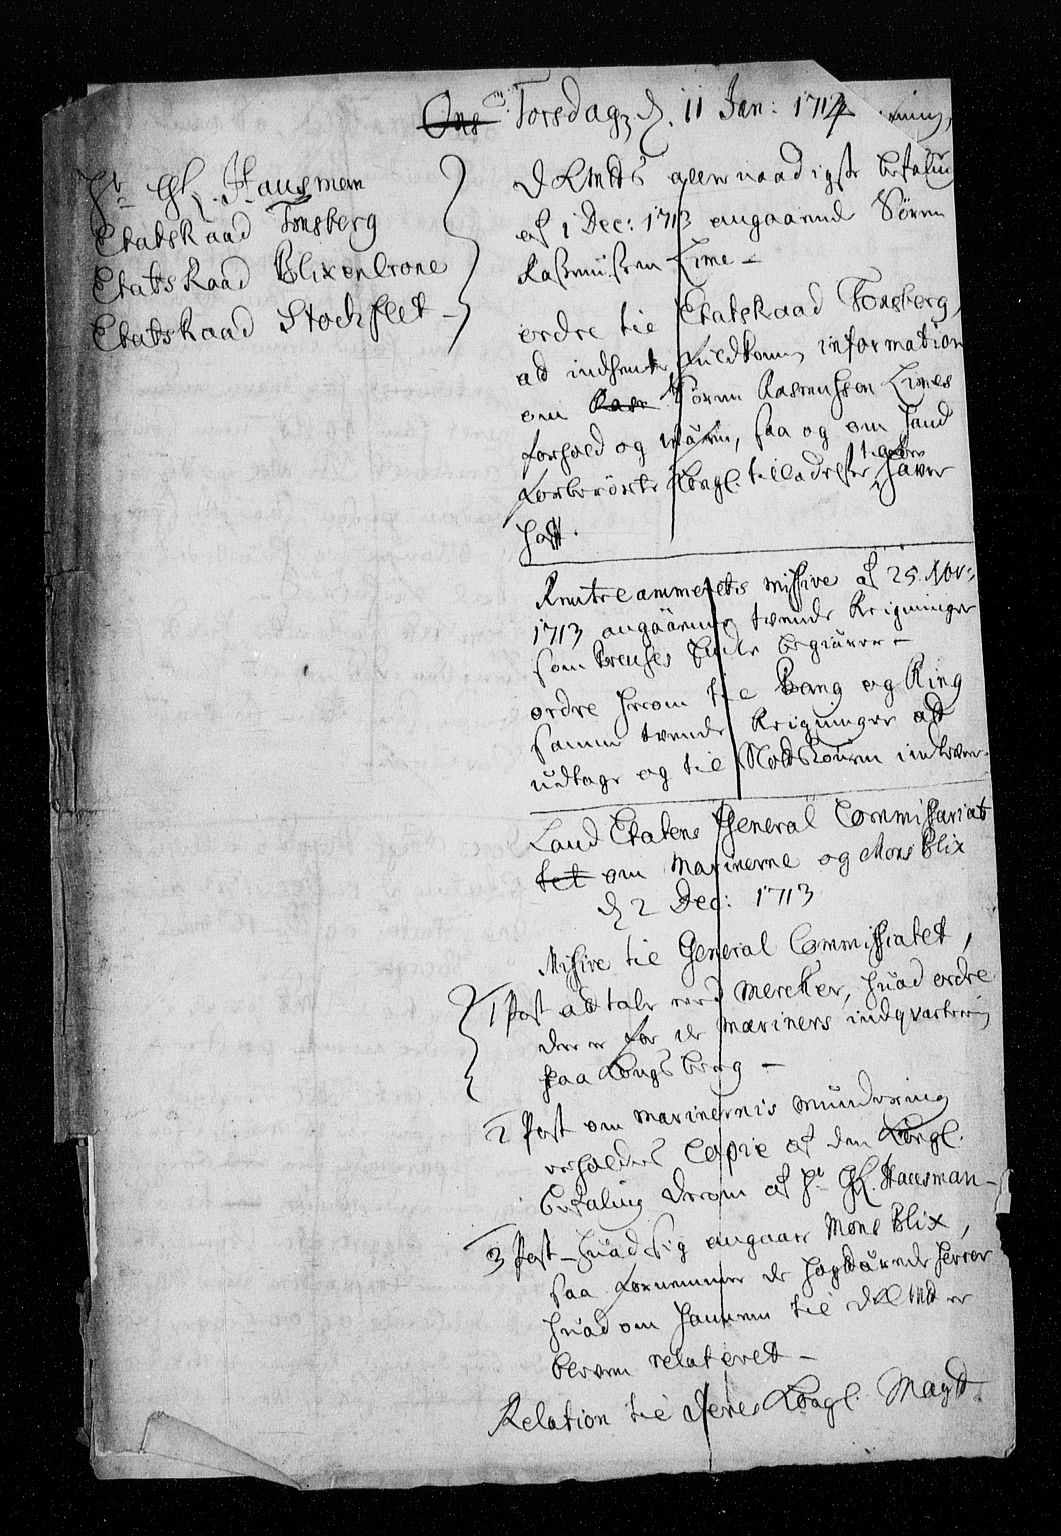 Ons Torsdag d. 11 Jan: 1714
Hr. Gl. Hausman
Etatsraad Tonsberg
Etatsraad Blixenkrone
Etatsraad Stochflet -
allernaadigste befaling
af 1 Dec: 1713 angaaende Sören
Rasmusen Lime -
ordre til Etatsraad Tonsberg,
ad indhente fuldkom information
om Rasm Sören Rasmussen Limes
forhold og , saa og om hand
forberörte Kongl. tilladelse haver
hafft.
Rentecammerets missive af 25. Nov:
1713 angaaende tvende Krigninger
som begiærer -
ordre herom til Bang og Ring
samme tvende Krigninger at
udtage og til indlever
Land Etatens General Commissariat
tet om marinerne og Mons Blix
d 2 Dec: 1713
Missive til General Commissiatet,
1 Post ad tale med Mercker, huad ordre
der er for de mariners indqvartering
paa Kongsberg -
2 Post om marinernis mundering
erholdes Copie af den Kongl.
befaling derom af Hr Gl. Hausman -
3 Post - huad sig angaar Mons Blix,
saa fornemmer de höyædle herrer
huad om hannem til er
bleven relateret -
Relation til deres Kongl. Mayt.